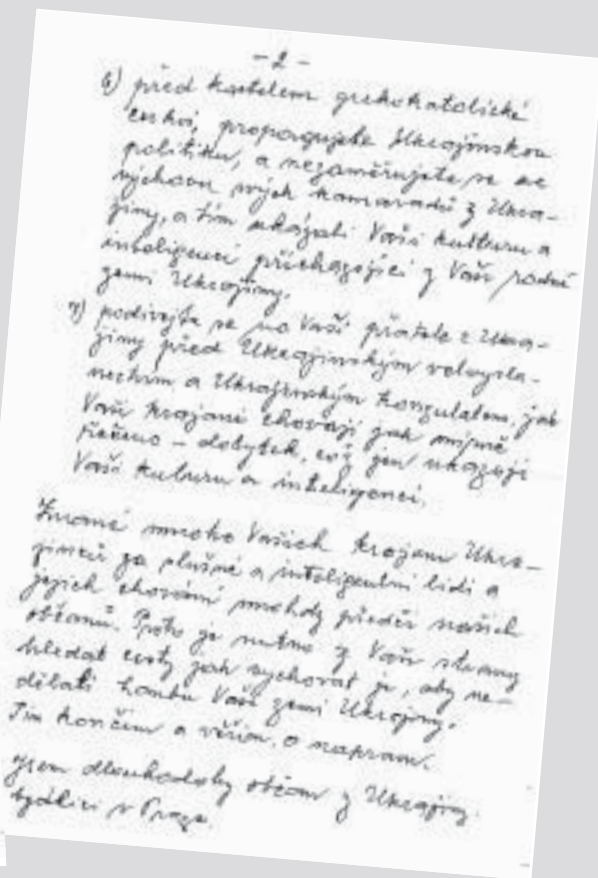 - 2 -
6) před kostelem grekokatolické
církvi, propagujete Ukrajinskou
politiku, a nezaměřujete se ne
výchovu svých kamaradů z Ukra-
jiny, a tím ukázali Vaši kulturu a
inteligenci přicházející z Vaší rodné
zemi Ukrajiny.
7) podivejte se na Vaši přatele z Ukra-
jiny před Ukrajinským velvysla-
nectvim a Ukrajinským konzulatem, jak
Vaši krajané chovají jak mírně
řečeno - dobytek, což jen ukazuji
Vaši kulturu a inteligenci.
Známe mnoho Vašich krajanu Ukra-
jinců za slušné a inteligentni lidi a
jejich chování mnohdy předčí našich
občanů. Proto je nutno z Vaši strany
hledat cesty jak vychovat je, aby ne-
dělali hanbu Vaši zemi Ukrajiny.
Tim končim a věřim o napravu.
Jsem dlouhodoby občan z Ukrajiny
bydlici v Praze.